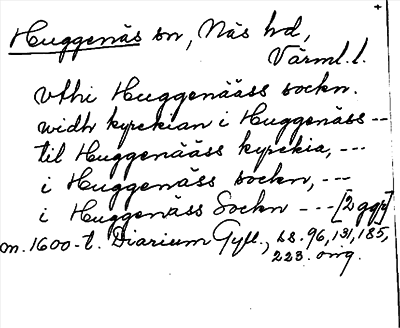 Huggenäs sn, Näs hd,
Värml. l.
vthi Huggenääss sockn.
widh kyrckian i Huggenäss --
til Huggenääss kyrckia, ---
i Huggenäss sockn, ---
i Huggenäss Sockn --- [2 ggr]
m. 1600-t. Diarium Gyll., ss. 96, 131, 185,
223. orig.